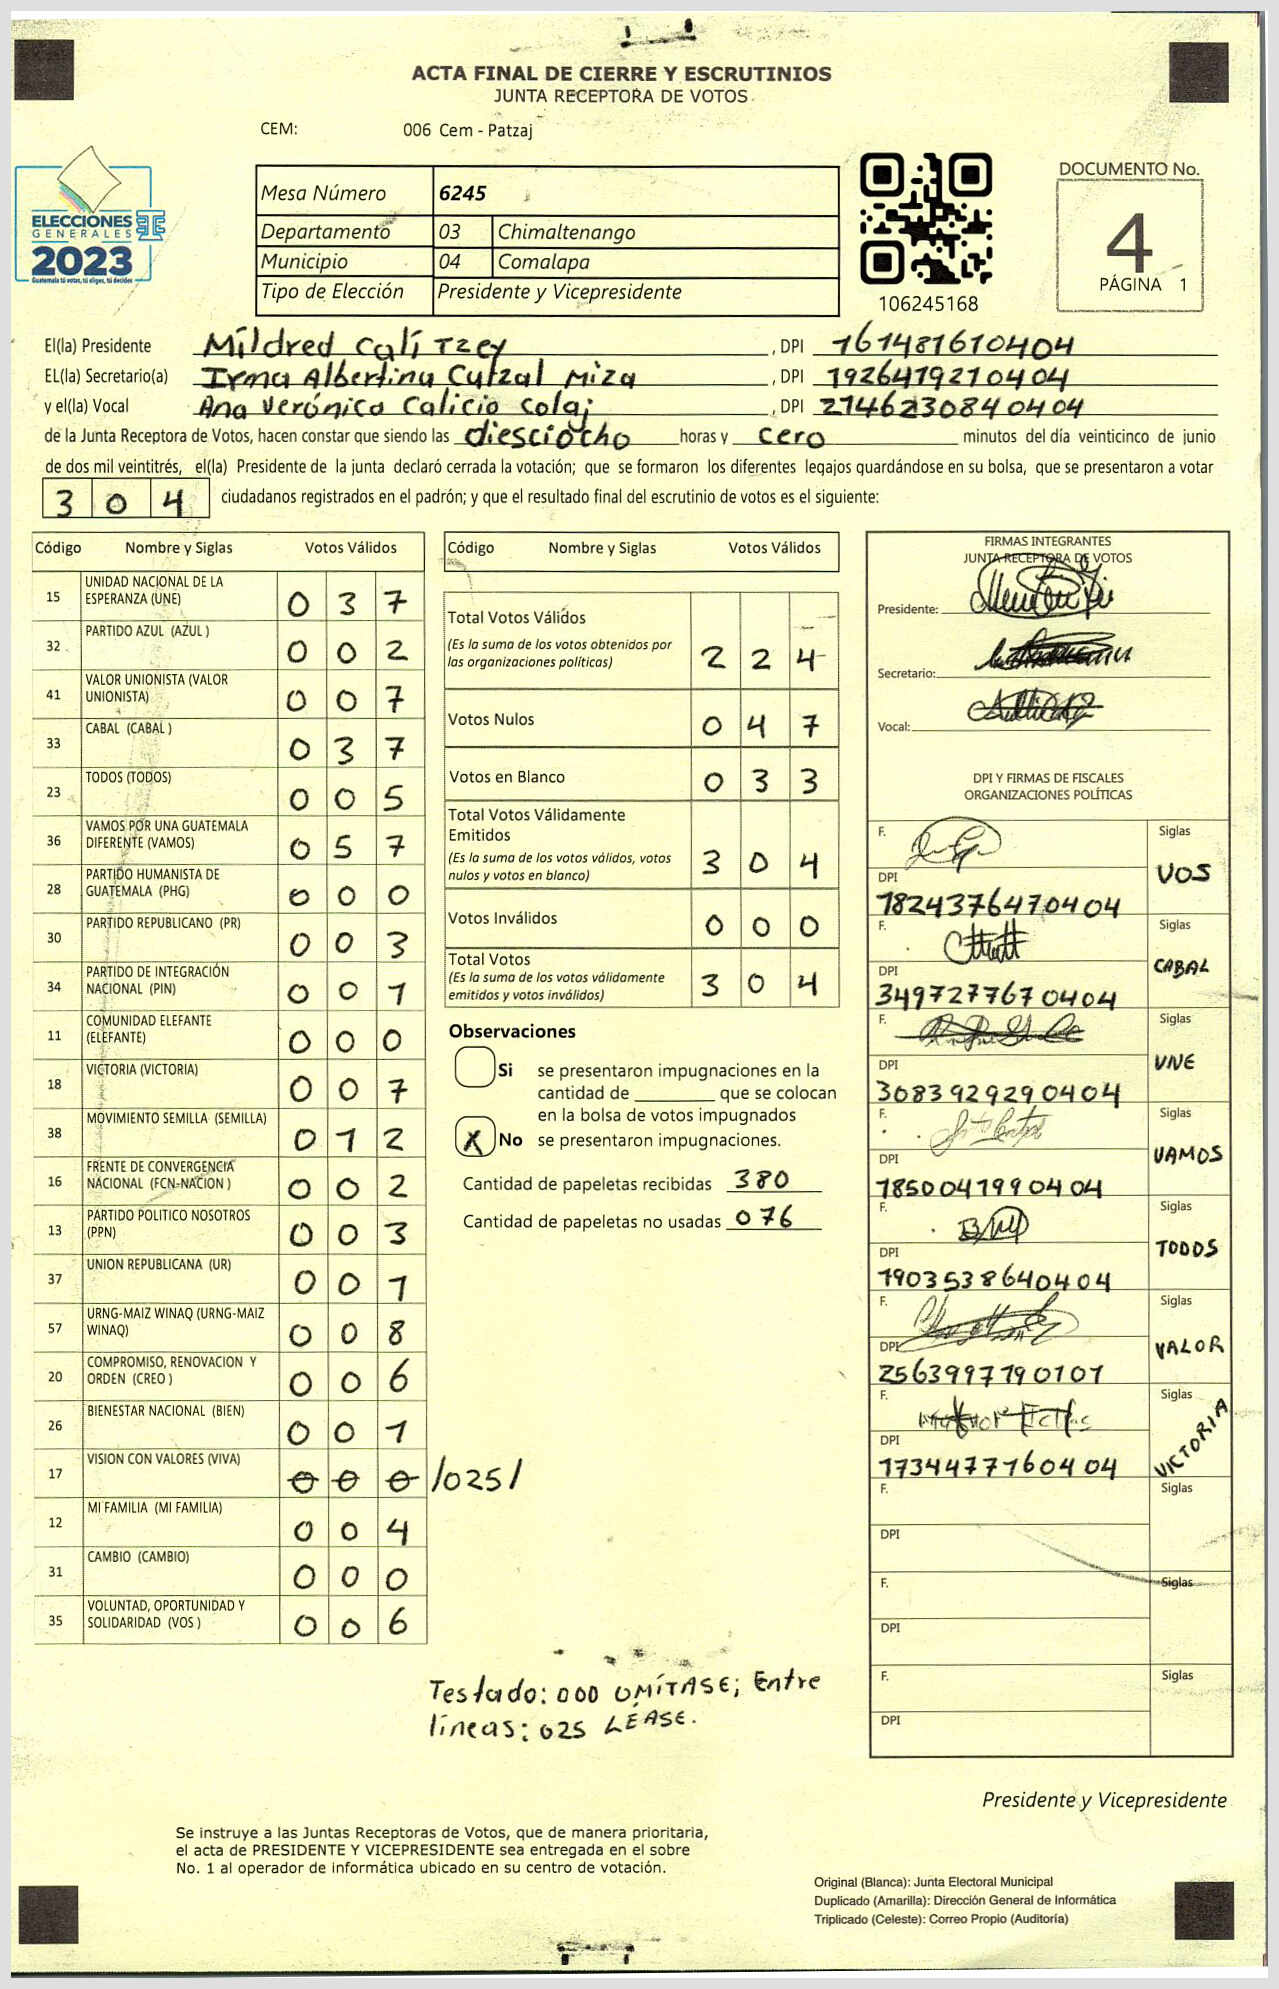 ACTA FINAL DE CIERRE Y ESCRUTINIOS
JUNTA RECEPTORA DE VOTOS
CEM: 006 Cem - Patzaj
ELECCIONES
GENERALES
2023
Guatemala tú votas, tú eliges, tú decides
Mesa Número 6245
Departamento 03 Chimaltenango
Municipio 04 Comalapa
Tipo de Elección Presidente y Vicepresidente
106245168
DOCUMENTO No.
4
PÁGINA 1
El(la) Presidente Mildred Calí Tzey, DPI 161481610404
EL(la) Secretario(a) Irma Albertina Cutzal Miza, DPI 1926419210404
y el(la) Vocal Ana Verónica Calicio Colaj, DPI 2746230840404
de la Junta Receptora de Votos, hacen constar que siendo las diesciocho horas y cero minutos del día veinticinco de junio
de dos mil veintitrés, el(la) Presidente de la junta declaró cerrada la votación; que se formaron los diferentes legajos quardándose en su bolsa, que se presentaron a votar
304 ciudadanos registrados en el padrón; y que el resultado final del escrutinio de votos es el siguiente:
Código Nombre y Siglas Votos Válidos
15 UNIDAD NACIONAL DE LA ESPERANZA (UNE) 0 3 7
32 PARTIDO AZUL (AZUL ) 0 0 2
41 VALOR UNIONISTA (VALOR UNIONISTA) 0 0 7
33 CABAL (CABAL ) 0 3 7
23 TODOS (TODOS) 0 0 5
36 VAMOS POR UNA GUATEMALA DIFERENTE (VAMOS) 0 5 7
28 PARTIDO HUMANISTA DE GUATEMALA (PHG) 0 0 0
30 PARTIDO REPUBLICANO (PR) 0 0 3
34 PARTIDO DE INTEGRACIÓN NACIONAL (PIN) 0 0 1
11 COMUNIDAD ELEFANTE (ELEFANTE) 0 0 0
18 VICTORIA (VICTORIA) 0 0 7
38 MOVIMIENTO SEMILLA (SEMILLA) 0 1 2
16 FRENTE DE CONVERGENCIA NACIONAL (FCN-NACION ) 0 0 2
13 PARTIDO POLITICO NOSOTROS (PPN) 0 0 3
37 UNION REPUBLICANA (UR) 0 0 1
57 URNG-MAIZ WINAQ (URNG-MAIZ WINAQ) 0 0 8
20 COMPROMISO, RENOVACION Y ORDEN (CREO ) 0 0 6
26 BIENESTAR NACIONAL (BIEN) 0 0 1
17 VISION CON VALORES (VIVA) 0 0 0 /025/
12 MI FAMILIA (MI FAMILIA) 0 0 4
31 CAMBIO (CAMBIO) 0 0 0
35 VOLUNTAD, OPORTUNIDAD Y SOLIDARIDAD (VOS ) 0 0 6
Código Nombre y Siglas Votos Válidos
Total Votos Válidos
(Es la suma de los votos obtenidos por
las organizaciones políticas) 2 2 4
Votos Nulos 0 4 7
Votos en Blanco 0 3 3
Total Votos Válidamente
Emitidos
(Es la suma de los votos válidos, votos
nulos y votos en blanco) 3 0 4
Votos Inválidos 0 0 0
Total Votos
(Es la suma de los votos válidamente
emitidos y votos inválidos) 3 0 4
Observaciones
Si se presentaron impugnaciones en la
cantidad de ________ que se colocan
en la bolsa de votos impugnados
X No se presentaron impugnaciones.
Cantidad de papeletas recibidas 380
Cantidad de papeletas no usadas 076
Testado: 000 OMÍTASE; Entre
líneas: 025 LÉASE.
FIRMAS INTEGRANTES
JUNTA RECEPTORA DE VOTOS
Presidente:
Secretario:
Vocal:
DPI Y FIRMAS DE FISCALES
ORGANIZACIONES POLÍTICAS
F. Siglas VOS
DPI 1824376470404
F. Siglas CABAL
DPI 3497277670404
F. Siglas UNE
DPI 3083929290404
F. Siglas VAMOS
DPI 1850041990404
F. Siglas TODOS
DPI 1903538640404
F. Siglas VALOR
DPI 2563997190101
F. Siglas VICTORIA
DPI 1734477160404
F. Siglas
DPI
F. Siglas
DPI
F. Siglas
DPI
Presidente y Vicepresidente
Se instruye a las Juntas Receptoras de Votos, que de manera prioritaria,
el acta de PRESIDENTE Y VICEPRESIDENTE sea entregada en el sobre
No. 1 al operador de informática ubicado en su centro de votación.
Original (Blanca): Junta Electoral Municipal
Duplicado (Amarilla): Dirección General de Informática
Triplicado (Celeste): Correo Propio (Auditoría)